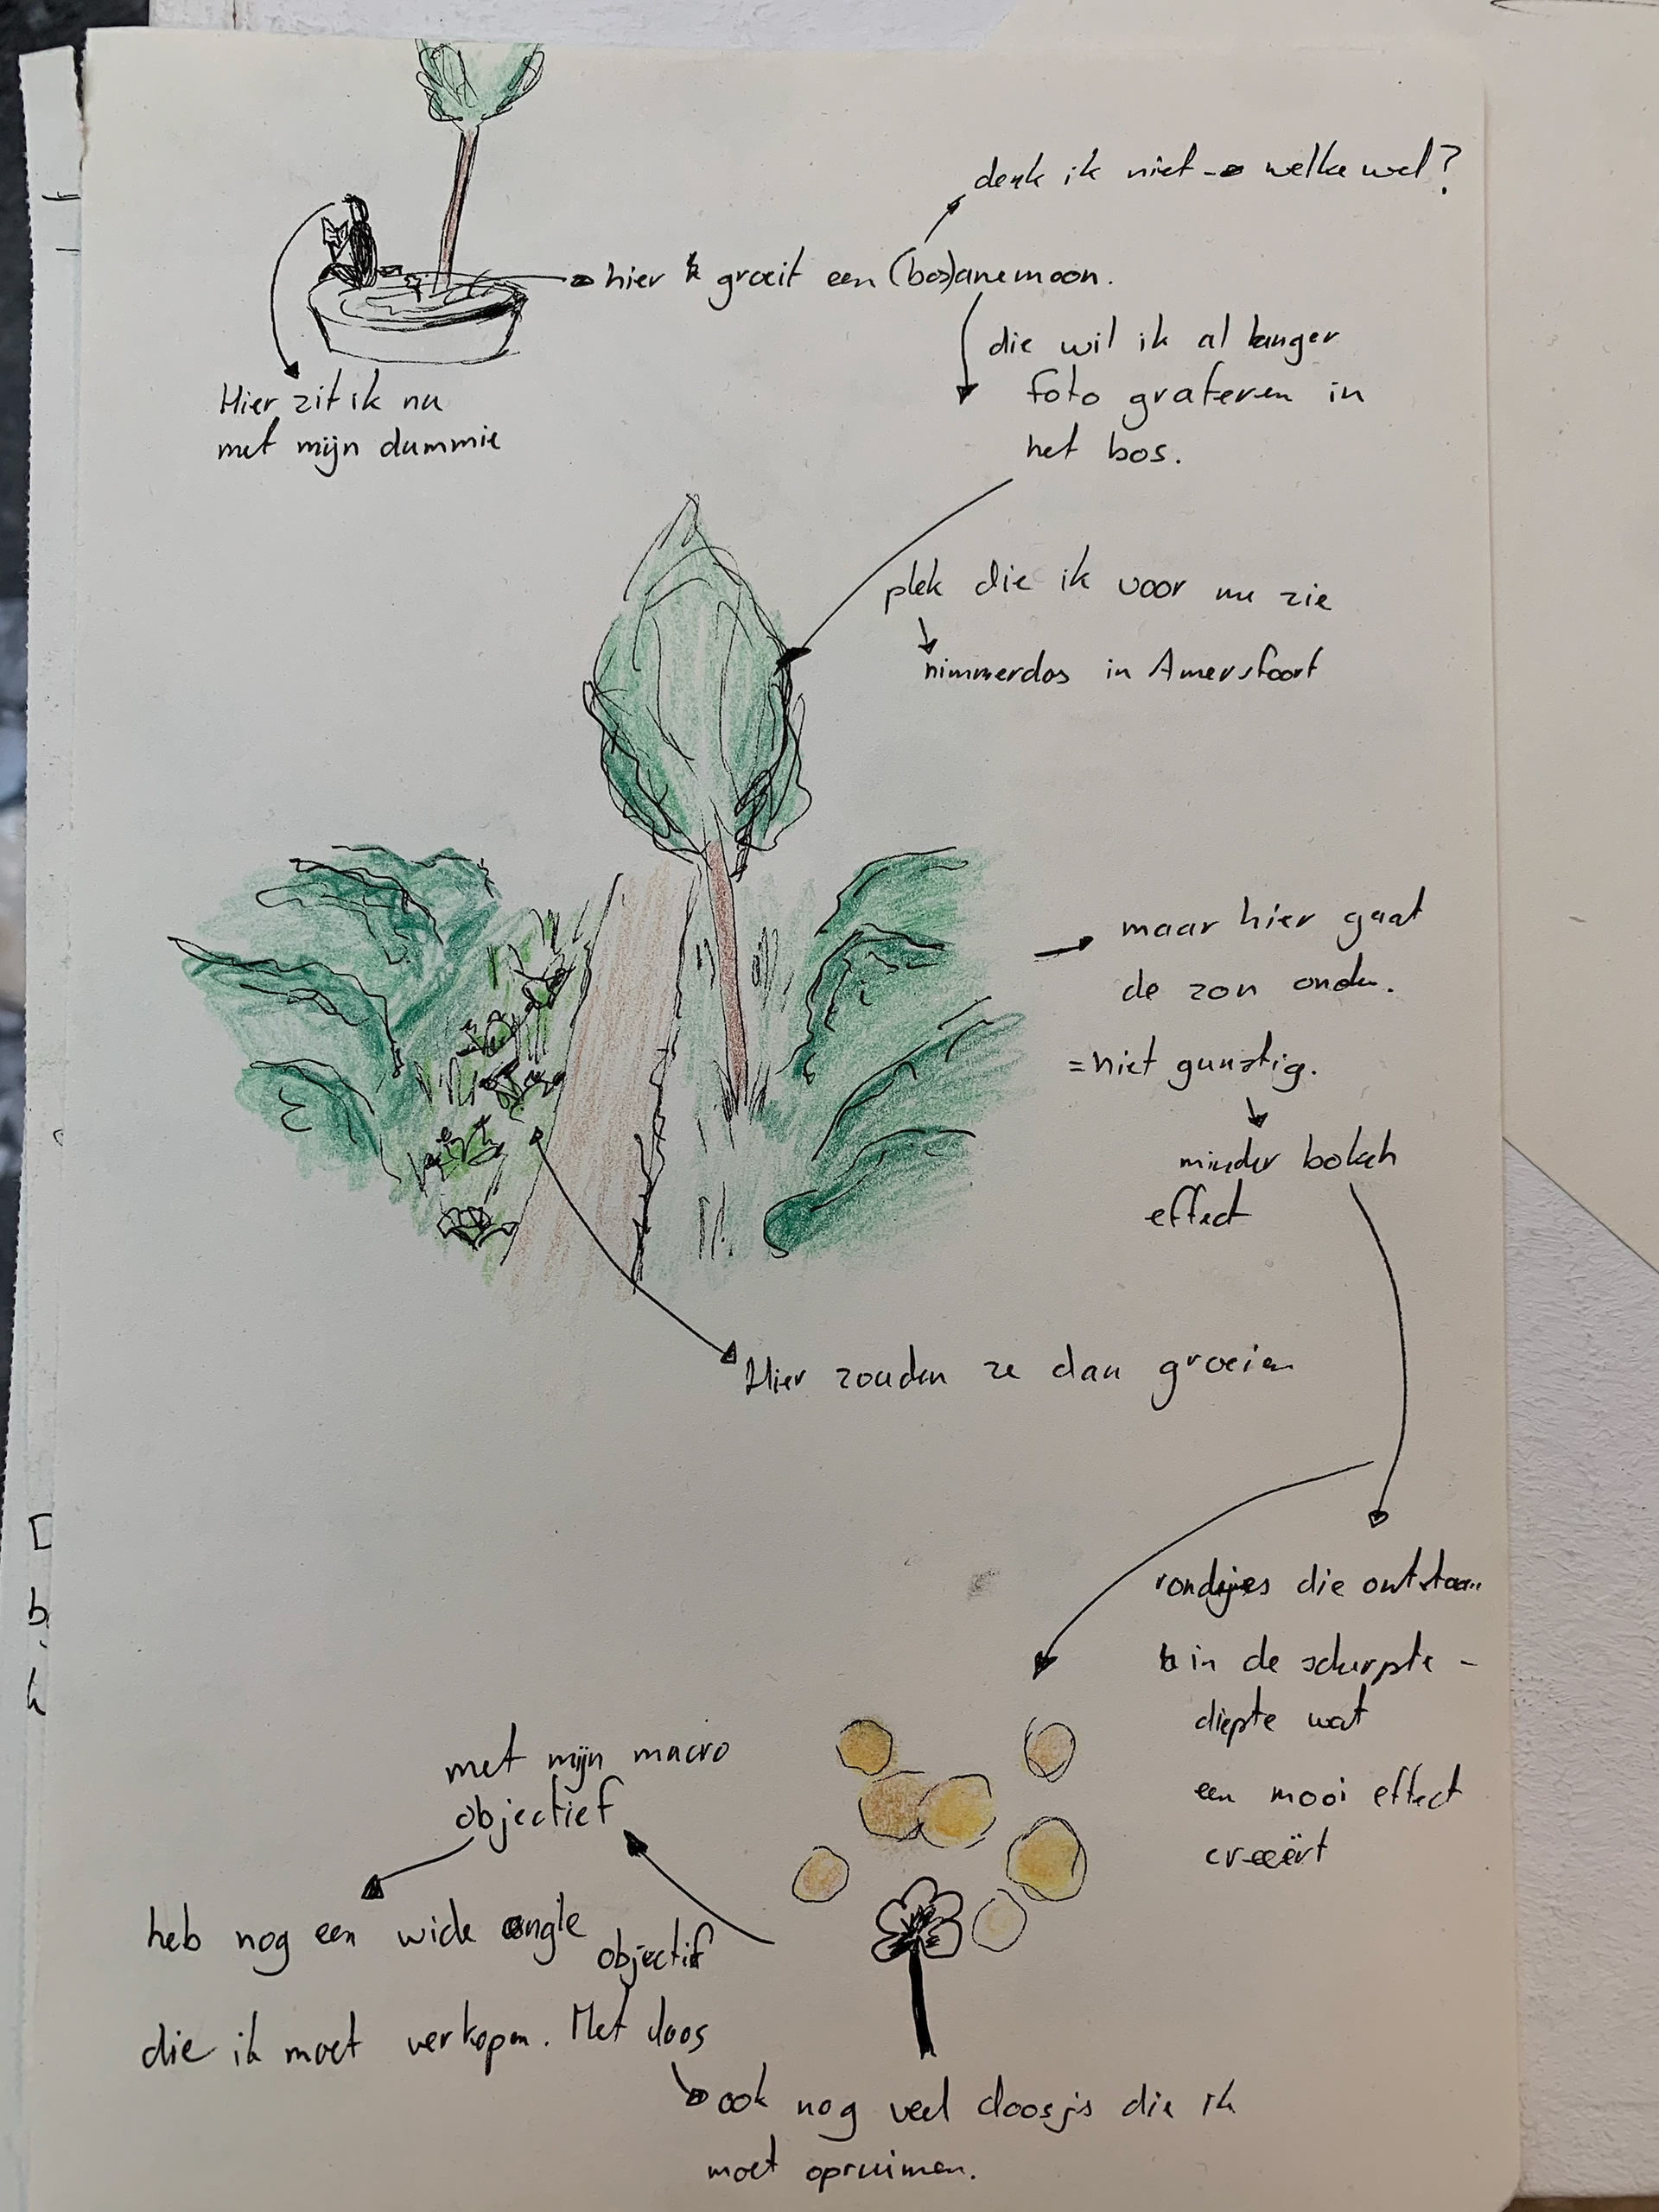 denk ik niet → welke wel?
hier groeit een (bos)anemoon.
die wil ik al langer
foto graferen in
het bos.
Hier zit ik nu
met mijn dummie
plek die ik voor nu zie
nimmerdos in Amersfoort
maar hier gaat
de zon onder.
= niet gunstig.
minder bokeh
effect
Hier zouden ze dan groeien
rondjes die ontstaan
in de scherpte -
diepte wat
een mooi effect
creeërt
met mijn macro
objectief
heb nog een wide angle
objectief
die ik moet verkopen. Met doos
ook nog veel doosjes die ik
moet opruimen.
b
h